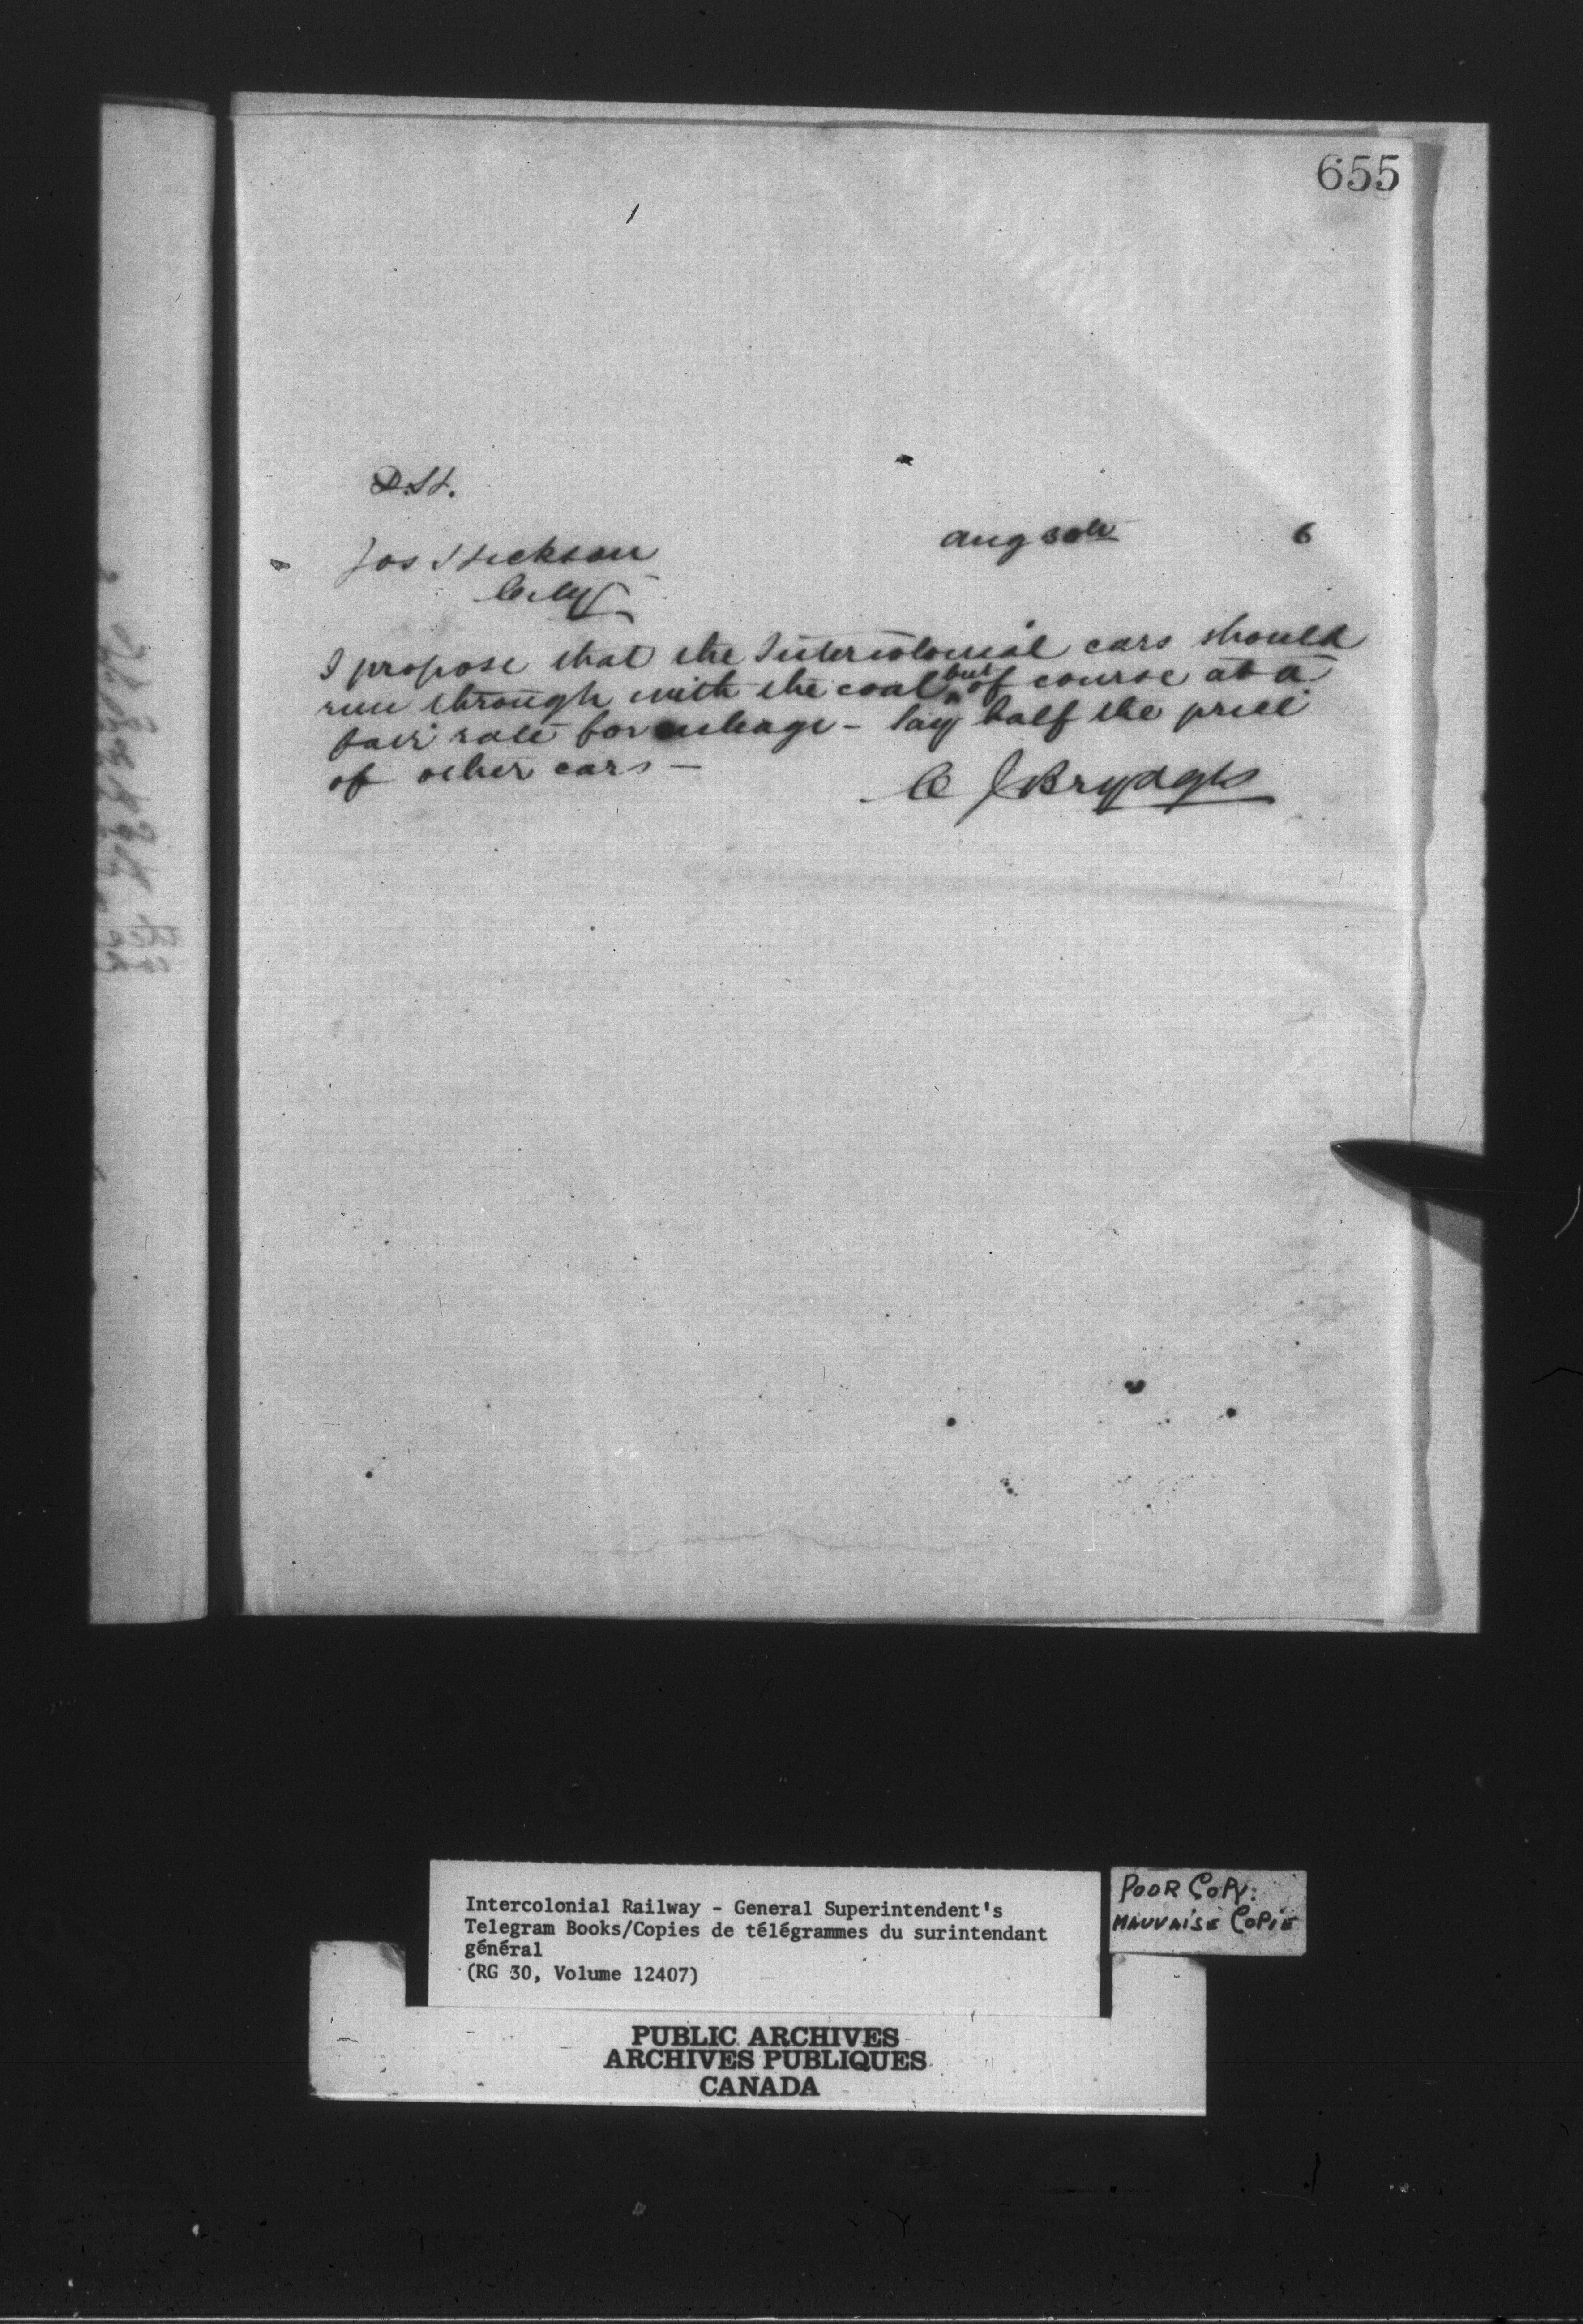 655
D.H.
Aug 30th 6
Jos Hickson
City
I propose that the Intercolonial cars should
run through with the coal but of course at a
fair rate for mileage - say half the price
of other cars -
C J Brydges
Intercolonial Railway - General Superintendent's
Telegram Books/Copies de télégrammes du surintendant
général
(RG 30, Volume 12407)
POOR COPY.
MAUVAISE COPIE
PUBLIC ARCHIVES
ARCHIVES PUBLIQUES
CANADA